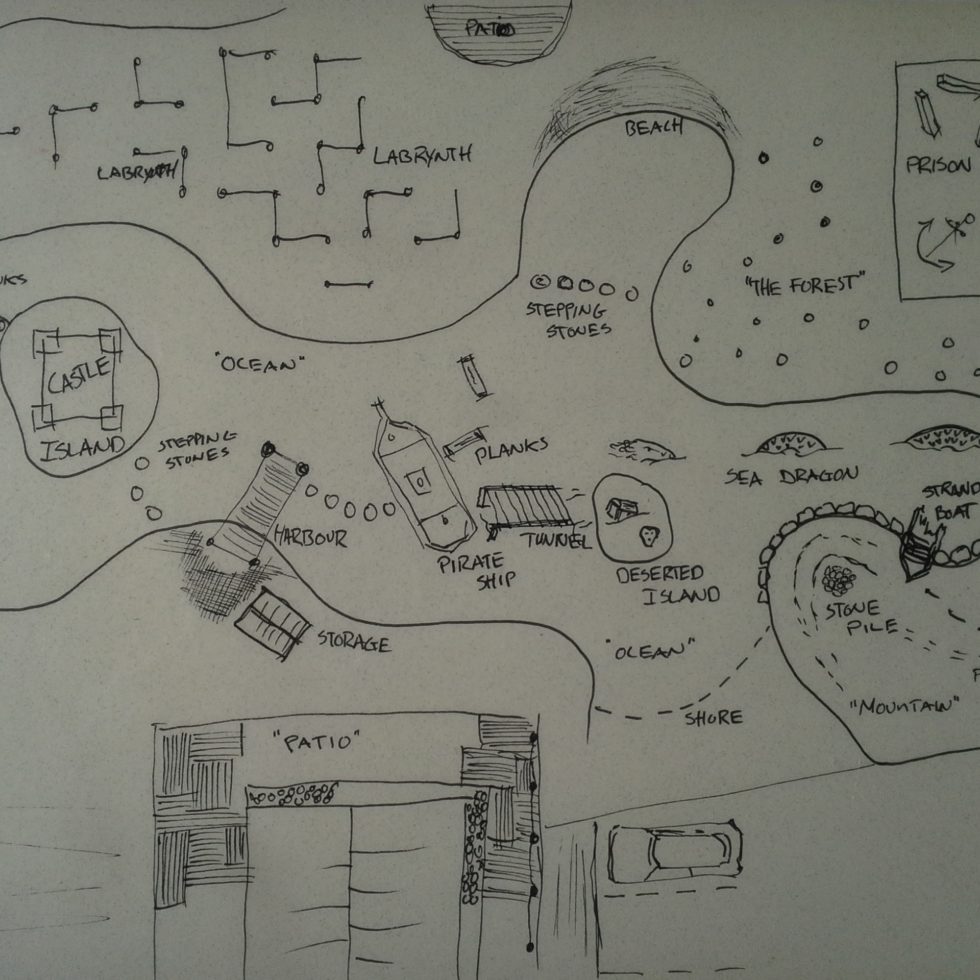 PATIO
BEACH
LABRYNTH
LABRYNTH
PRISON
"THE FOREST"
STEPPING
STONES
"OCEAN"
CASTLE
ISLAND
STEPPING
STONES
PLANKS
SEA DRAGON
HARBOUR
TUNNEL
PIRATE
SHIP
DESERTED
ISLAND
BOAT
STONE
PILE
STORAGE
"OCEAN"
SHORE
"MOUNTAIN"
"PATIO"